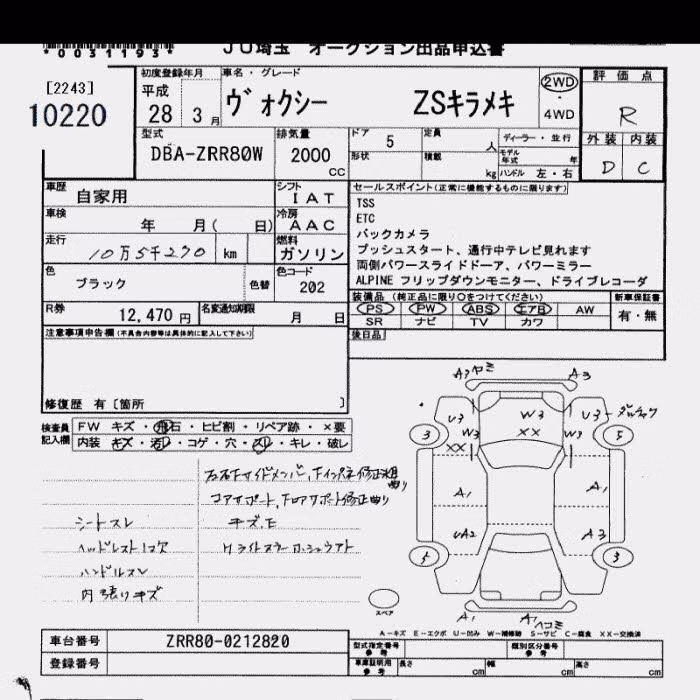 *0031193*
JU埼玉 オークション出品申込書
[2243]
10220
初度登録年月
平成
28 3 月
車名・グレード
ヴォクシー ZSキラメキ
2WD
・
4WD
評価点
R
外装 内装
D C
型式
DBA-ZRR80W
排気量
2000
CC
ドア 5
定員 人
ディーラー・並行
形状
積載 kg
モデル年式 年
ハンドル 左・右
車歴
自家用
シフト
IAT
車検
年 月( 日)
冷房
AAC
走行
10万5千270 km
燃料
ガソリン
色
ブラック
色替
色コード
202
R券
12,470 円
名変通知期限
月 日
セールスポイント(正常に機能するものに限ります)
TSS
ETC
バックカメラ
プッシュスタート、通行中テレビ見れます
両側パワースライドドーア、パワーミラー
ALPINE フリップダウンモニター、ドライブレコーダ
装備品 (純正品に限り○をつけてください)
新車保証書
PS PW ABS エアB AW
SR ナビ TV カワ
有・無
後日品
注意事項申告欄(不具合内容等は具体的に記入して下さい)
修復歴 有〔箇所 〕
検査員
記入欄
FW キズ・飛石・ヒビ割・リペア跡・×要
内装 キズ・汚レ・コゲ・穴・スレ・キレ・破レ
シートスレ
ヘッドレスト1コ欠
ハンドルスレ
内張りキズ
コアサポート、
キズ、E
A3 ヤミ
A3
U3
W3
XX
W3
W3
XX
U3
3
5
A1
A1
UA2
A3
5
3
A1
A1
ヘコミ
スペア
A-キズ E-エクボ U-凹み W-補修跡 S-サビ C-腐食 XX-交換済
車台番号
ZRR80-0212820
登録番号
型式指定番号
参考
類別区分番号
参考
車庫証明用
参考
長さ cm
幅 cm
高さ cm